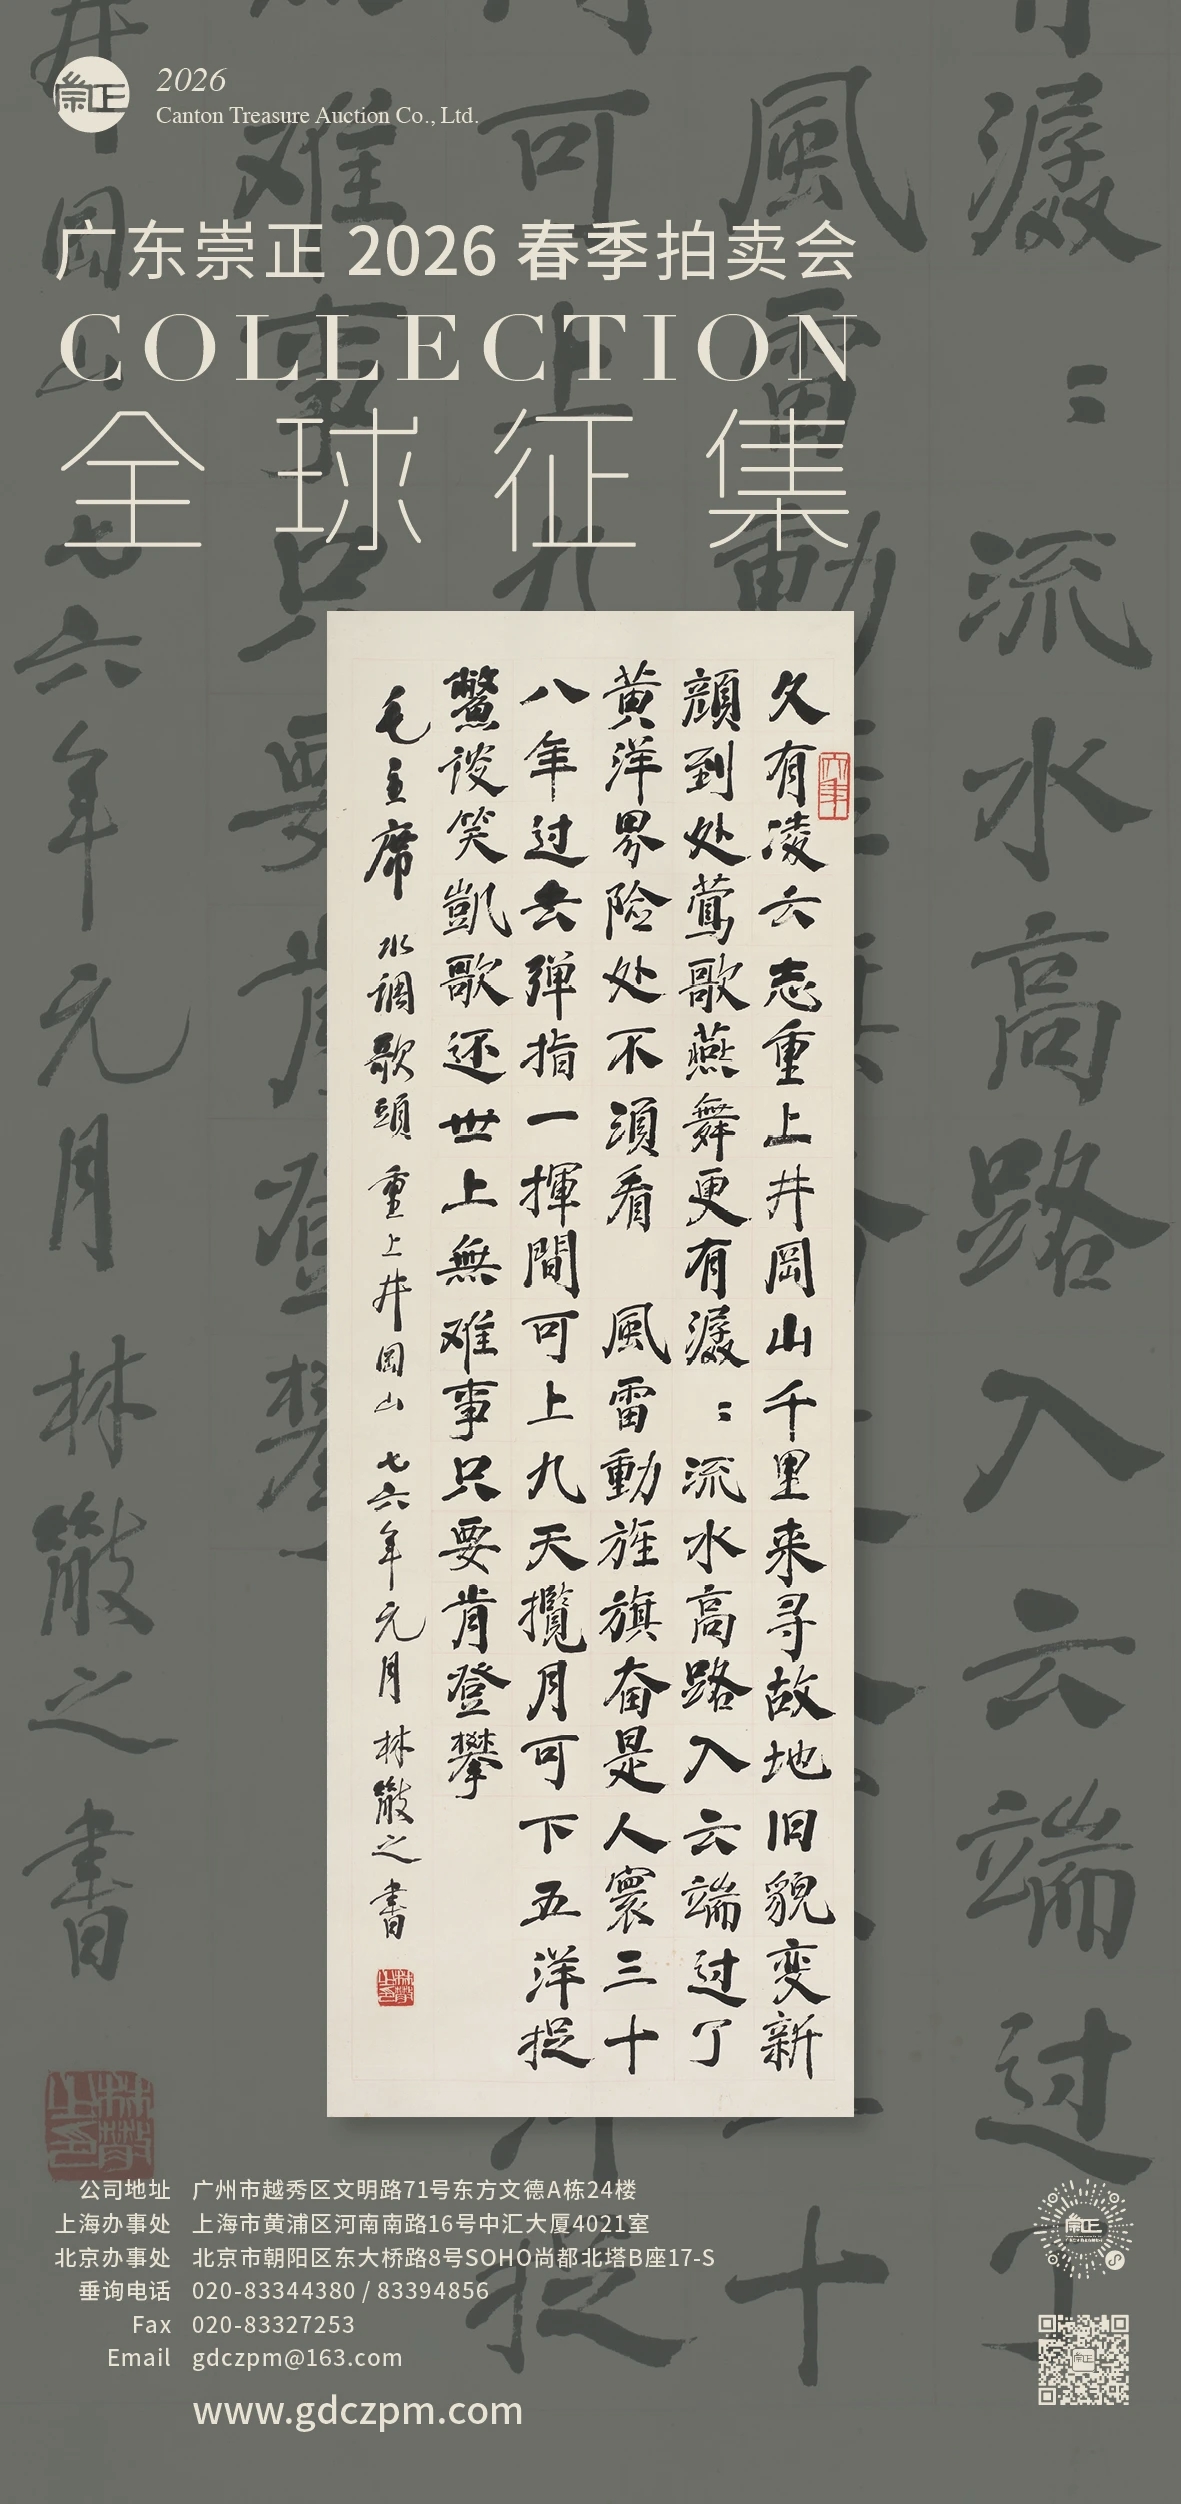 崇正
2026
Canton Treasure Auction Co., Ltd.
广东崇正 2026 春季拍卖会
COLLECTION
全球征集
久有凌云志重上井岡山千里来寻故地旧貌变新
顔到处莺歌燕舞更有潺：流水高路入云端过了
黄洋界险处不須看 風雷動旌旗奋是人寰三十
八年过去弹指一揮間可上九天攬月可下五洋捉
鱉谈笑凱歌还世上無难事只要肯登攀
毛主席 水调歌頭 重上井岡山 七六年元月 林散之書
公司地址 广州市越秀区文明路71号东方文德A栋24楼
上海办事处 上海市黄浦区河南南路16号中汇大厦4021室
北京办事处 北京市朝阳区东大桥路8号SOHO尚都北塔B座17-S
垂询电话 020-83344380 / 83394856
Fax 020-83327253
Email gdczpm@163.com
www.gdczpm.com